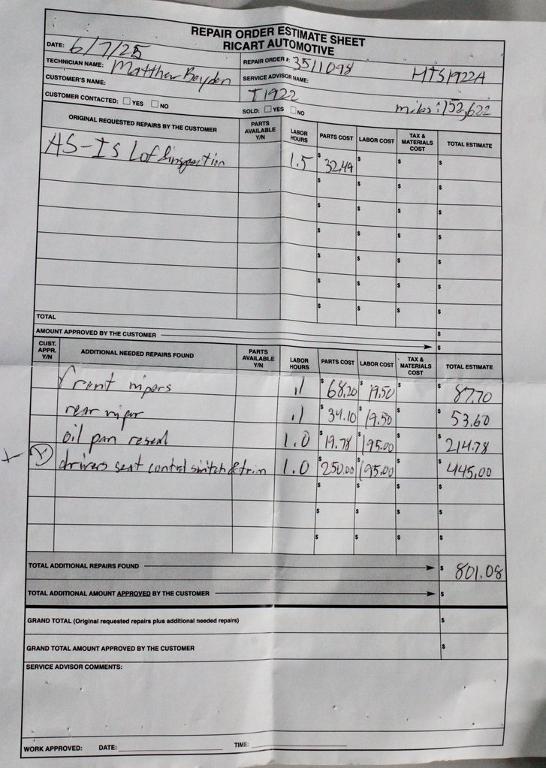 REPAIR ORDER ESTIMATE SHEET
RICART AUTOMOTIVE
DATE: 6/7/25 REPAIR ORDER #: 3511098 HTS1922A
TECHNICIAN NAME: Matthew SERVICE ADVISOR NAME:
CUSTOMER'S NAME: T1922
CUSTOMER CONTACTED: ☐ YES ☐ NO SOLD: ☐ YES ☐ NO miles: 152,622
ORIGINAL REQUESTED REPAIRS BY THE CUSTOMER PARTS AVAILABLE Y/N LABOR HOURS PARTS COST LABOR COST TAX & MATERIALS COST TOTAL ESTIMATE
AS-IS Lof & inspection 1.5 $ 32.49 $ $ $
$ $ $ $
$ $ $ $
$ $ $ $
$ $ $ $
$ $ $ $
TOTAL $
AMOUNT APPROVED BY THE CUSTOMER $
CUST. APPR. Y/N ADDITIONAL NEEDED REPAIRS FOUND PARTS AVAILABLE Y/N LABOR HOURS PARTS COST LABOR COST TAX & MATERIALS COST TOTAL ESTIMATE
front wipers .1 $ 68.20 $ 19.50 $ $ 87.70
rear wiper .1 $ 34.10 $ 19.50 $ $ 53.60
oil pan reseal 1.0 $ 19.78 $ 195.00 $ $ 214.78
drivers seat control switch & trim 1.0 $ 250.00 $ 195.00 $ $ 445.00
$ $ $ $
$ $ $ $
$ $ $ $
TOTAL ADDITIONAL REPAIRS FOUND $ 801.08
TOTAL ADDITIONAL AMOUNT APPROVED BY THE CUSTOMER $
GRAND TOTAL (Original requested repairs plus additional needed repairs) $
GRAND TOTAL AMOUNT APPROVED BY THE CUSTOMER $
SERVICE ADVISOR COMMENTS:
WORK APPROVED: DATE: TIME: